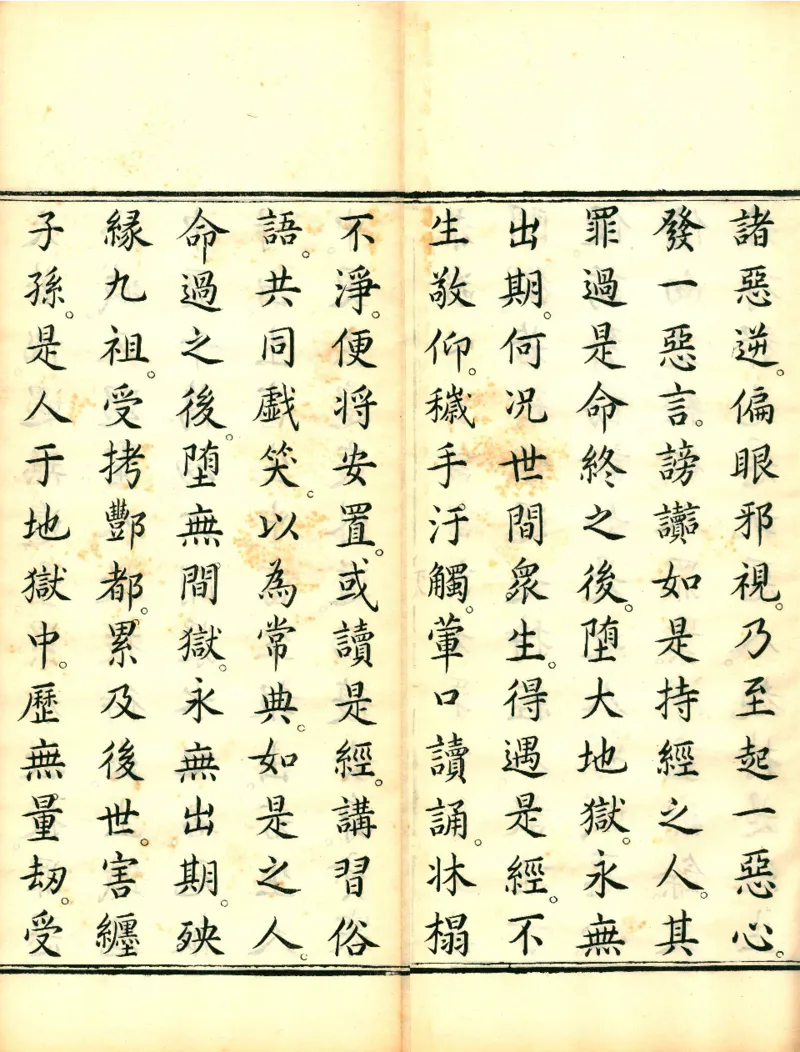 諸惡逆。偏眼邪視。乃至起一惡心。
發一惡言。謗讟如是持經之人。其
罪過是命終之後。堕大地獄。永無
出期。何况世間衆生。得遇是經。不
生敬仰。穢手汙觸。葷口讀誦。牀榻
不淨。便将安置。或讀是經。講習俗
語。共同戲笑。以為常典。如是之人。
命過之後。堕無間獄。永無出期。殃
緣九祖。受拷酆都。累及後世。害纏
子孫。是人于地獄中。歷無量劫。受